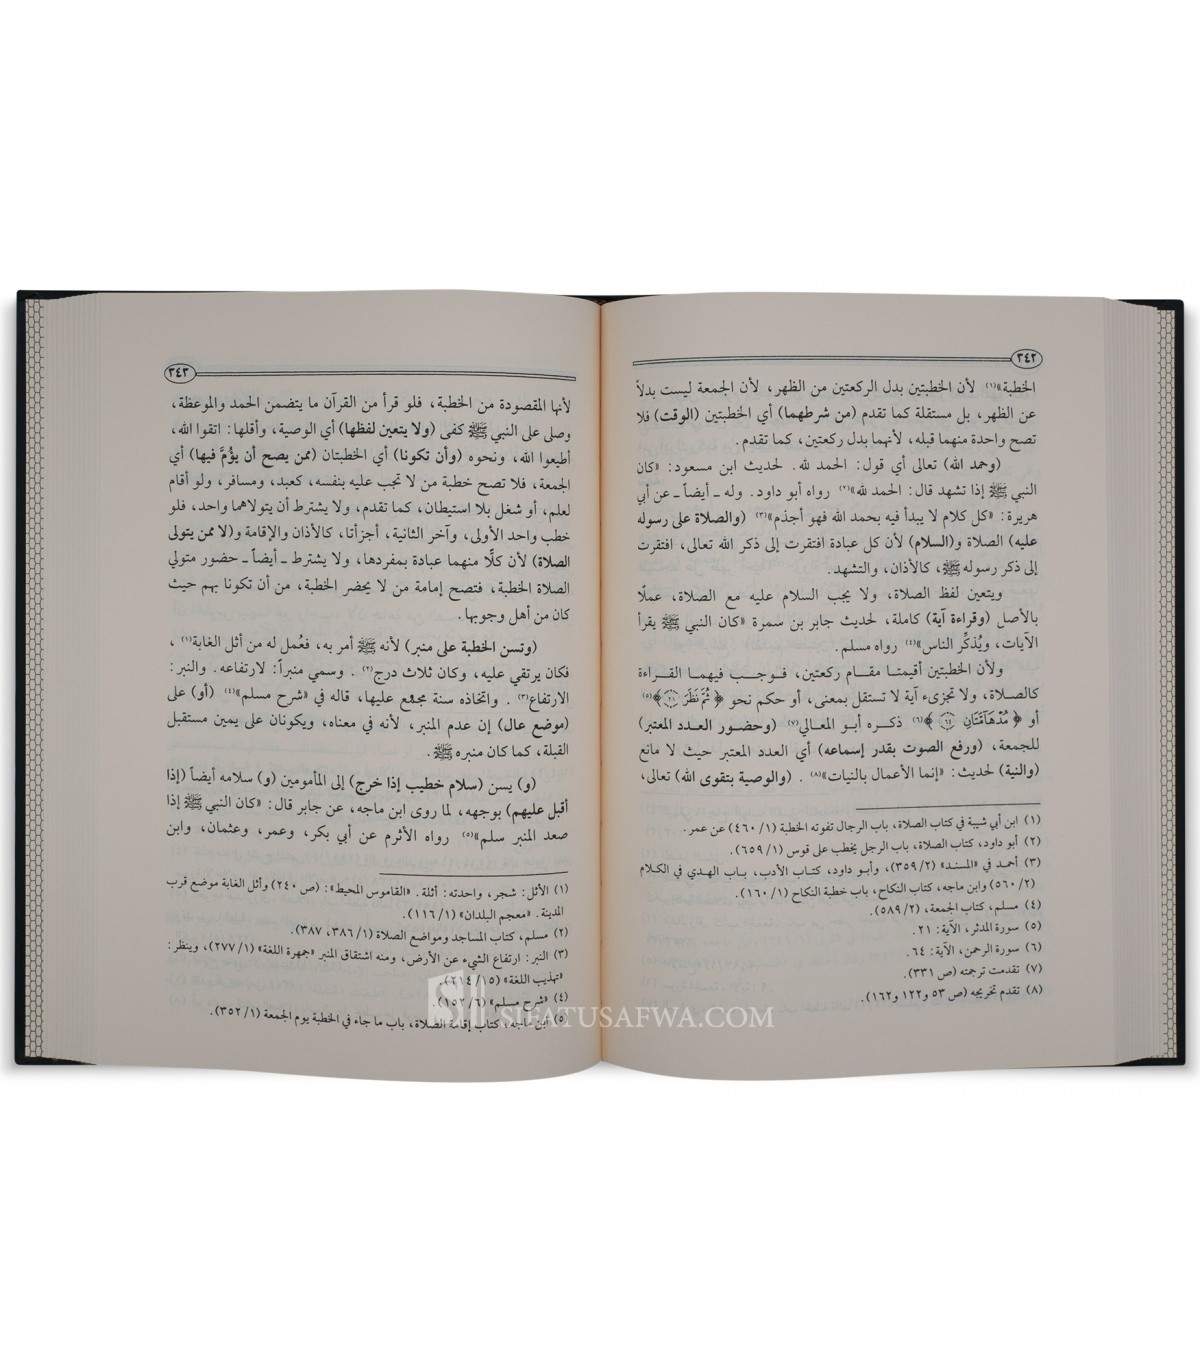 ٣٤٢
الخطبة»(١) لأن الخطبتين بدل الركعتين من الظهر، لأن الجمعة ليست بدلاً
عن الظهر، بل مستقلة كما تقدم (من شرطهما) أي الخطبتين (الوقت) فلا
تصح واحدة منهما قبله، لأنهما بدل ركعتين، كما تقدم.
(وحمد الله) تعالى أي قول: الحمد لله. لحديث ابن مسعود: «كان
النبي ﷺ إذا تشهد قال: الحمد لله»(٢) رواه أبو داود. وله ـ أيضاً ـ عن أبي
هريرة: «كل كلام لا يبدأ فيه بحمد الله فهو أجذم»(٣) (والصلاة على رسوله
عليه) الصلاة و(السلام) لأن كل عبادة افتقرت إلى ذكر الله تعالى، افتقرت
إلى ذكر رسوله ﷺ، كالأذان، والتشهد.
ويتعين لفظ الصلاة، ولا يجب السلام عليه مع الصلاة، عملًا
بالأصل (وقراءة آية) كاملة، لحديث جابر بن سمرة «كان النبي ﷺ يقرأ
الآيات، ويُذكِّر الناس»(٤) رواه مسلم.
ولأن الخطبتين أقيمتا مقام ركعتين، فوجب فيهما القراءة
كالصلاة، ولا تجزىء آية لا تستقل بمعنى، أو حكم نحو ﴿ ثُمَّ نَظَرَ ۝٢١ ﴾(٥)
أو ﴿ مُدْهَامَّتَانِ ۝٦٤ ﴾(٦) ذكره أبو المعالي(٧) (وحضور العدد المعتبر)
للجمعة، (ورفع الصوت بقدر إسماعه) أي العدد المعتبر حيث لا مانع
(والنية) لحديث: «إنما الأعمال بالنيات»(٨). (والوصية بتقوى الله) تعالى،
(١) ابن أبي شيبة في كتاب الصلاة، باب الرجال تفوته الخطبة (١/ ٤٦٠) عن عمر.
(٢) أبو داود، كتاب الصلاة، باب الرجل يخطب على قوس (١/ ٦٥٩).
(٣) أحمد في «المسند» (٢/ ٣٥٩)، وأبو داود، كتاب الأدب، باب الهدي في الكلام
(٢/ ٥٦٠) وابن ماجه، كتاب النكاح، باب خطبة النكاح (١/ ١٦٠).
(٤) مسلم، كتاب الجمعة، (٢/ ٥٨٩).
(٥) سورة المدثر، الآية: ٢١.
(٦) سورة الرحمن، الآية: ٦٤.
(٧) تقدمت ترجمته (ص ٣٣١).
(٨) تقدم تخريجه (ص ٥٣ و١٢٢ و١٦٢).
٣٤٣
لأنها المقصودة من الخطبة، فلو قرأ من القرآن ما يتضمن الحمد والموعظة،
وصلى على النبي ﷺ كفى (ولا يتعين لفظها) أي الوصية، وأقلها: اتقوا الله،
أطيعوا الله، ونحوه (وأن تكونا) أي الخطبتان (ممن يصح أن يؤمَّ فيها) أي
الجمعة، فلا تصح خطبة من لا تجب عليه بنفسه، كعبد، ومسافر، ولو أقام
لعلم، أو شغل بلا استيطان، كما تقدم، ولا يشترط أن يتولاهما واحد، فلو
خطب واحد الأولى، وآخر الثانية، أجزأتا، كالأذان والإقامة و(لا ممن يتولى
الصلاة) لأن كلًّا منهما عبادة بمفردها، ولا يشترط ـ أيضاً ـ حضور متولي
الصلاة الخطبة، فتصح إمامة من لا يحضر الخطبة، من أن تكونا بهم حيث
كان من أهل وجوبها.
(وتسن الخطبة على منبر) لأنه ﷺ أمر به، فعُمل له من أثل الغابة(١)،
فكان يرتقي عليه، وكان ثلاث درج(٢). وسمي منبراً: لارتفاعه. والنبر:
الارتفاع(٣). واتخاذه سنة مجمع عليها، قاله في «شرح مسلم»(٤) (أو) على
(موضع عال) إن عدم المنبر، لأنه في معناه، ويكونان على يمين مستقبل
القبلة، كما كان منبره ﷺ.
(و) يسن (سلام خطيب إذا خرج) إلى المأمومين (و) سلامه أيضاً (إذا
أقبل عليهم) بوجهه، لما روى ابن ماجه، عن جابر قال: «كان النبي ﷺ إذا
صعد المنبر سلم»(٥) رواه الأثرم عن أبي بكر، وعمر، وعثمان، وابن
(١) الأثل: شجر، واحدته: أثلة. «القاموس المحيط»: (ص ٢٤٠) وأثل الغابة موضع قرب
المدينة. «معجم البلدان» (١/ ١١٦).
(٢) مسلم، كتاب المساجد ومواضع الصلاة (١/ ٣٨٦، ٣٨٧).
(٣) النبر: ارتفاع الشيء عن الأرض، ومنه اشتقاق المنبر «جمهرة اللغة» (١/ ٢٧٧)، وينظر:
«تهذيب اللغة» (١٥/ ٢١٤).
(٤) «شرح مسلم» (٦/ ١٥٢).
(٥) ابن ماجه، كتاب إقامة الصلاة، باب ما جاء في الخطبة يوم الجمعة (١/ ٣٥٢).
SIFATUSAFWA.COM